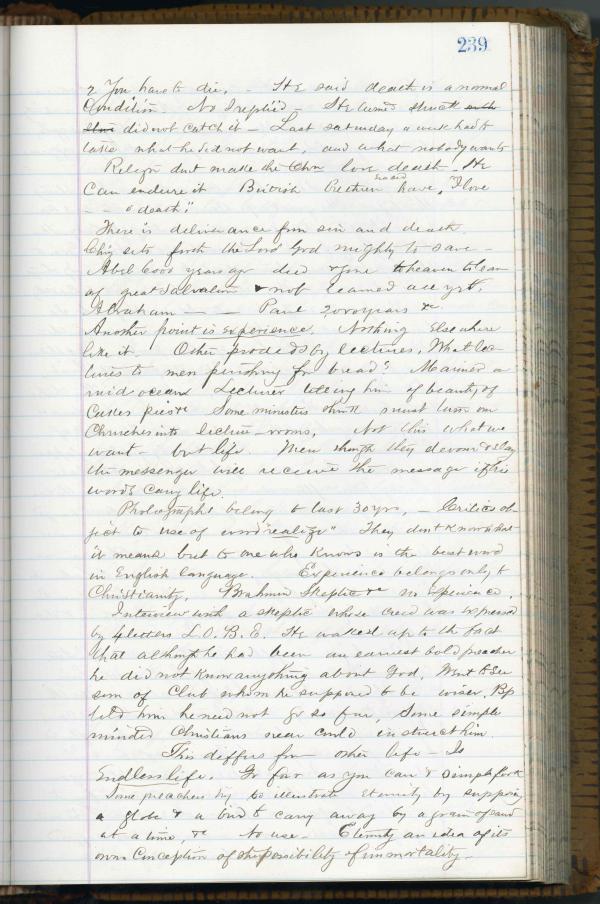 239
2 You have to die. - He said death is a normal
Condition. No I replied - He turned struck
did not catch it - Last Saturday a week had to
take what he did not want, and what nobody wants
Relign dont make the Chn love death. He
Can endure it British brethren have, "I love
- - o death."
There is deliverance from sin and death.
sets forth the Lord God mighty to save -
Abel 6000 years ago died & gone to heaven to learn
of great Salvation & not learned all yet.
Abraham - - Paul 2,000 years &c.
Another point is experience. Nothing elsewhere
like it. Other produced by lectures. What lec-
tures to men perishing for bread? Mariner a
mid ocean Lecturer telling him of beauty of
Cakes pies &c Some ministers think must turn our
Churches into lecture-rooms. Not this what we
want - but life. Men though they devour & slay
the messenger will receive the message if the
words carry life.
Photographs belong to last 30 yrs. - Critics ob-
ject to use of word "realize" They dont know what
it means but to one who knows is the best word
in English language. Experience belongs only to
Christianity. Brahmin Skeptic &c no experience.
Interview with a skeptic whose creed was expressed
by 4 letters L.O.B.E. He waked up to the fact
that although he had been an earnest bold preacher
he did not know anything about God. Went to see
som of Club whom he supposed to be wiser. Bp
told him he need not go so far, Some simple
minded Christians near could instruct him.
This differs from other life - Is
Endless life. Go far as you can &
Some preachers try to illustrate eternity by supposing
a globe & a bird to carry away by a grain of sand
at a time, &c No use - Eternity an idea of its
own Conception of the possibility of immortality -